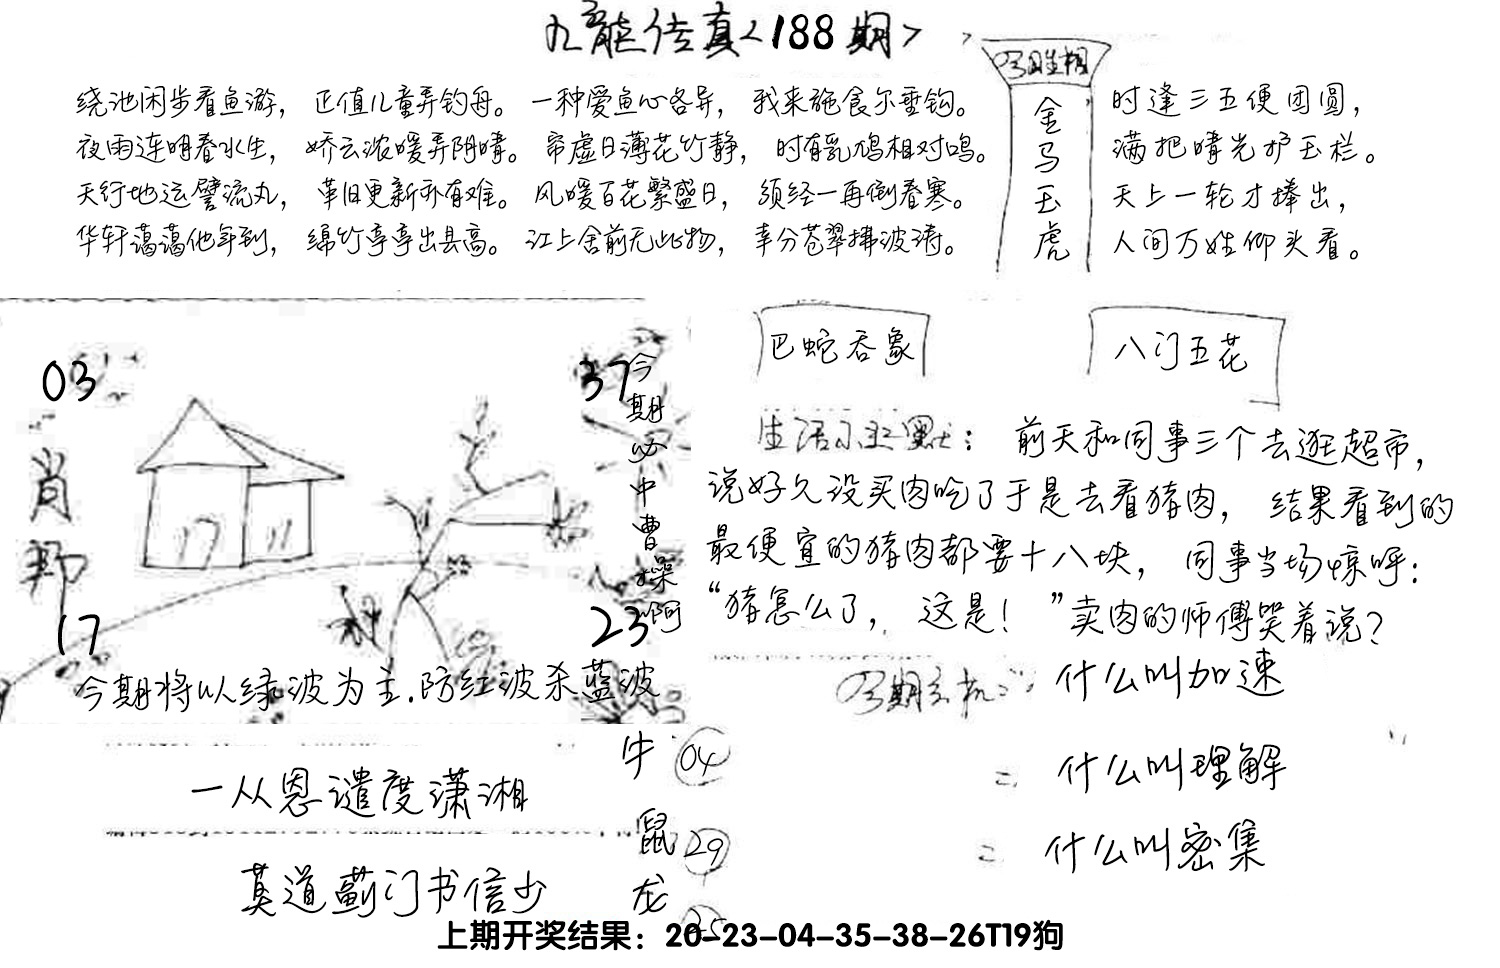 九龙传真<188期>
绕池闲步看鱼游，正值儿童弄钓舟。一种爱鱼心各异，我来施食尔垂钩。
夜雨连明春水生，娇云浓暖弄阴晴。帘虚日薄花竹静，时有乳鸠相对鸣。
天行地运譬流丸，革旧更新亦有难。风暖百花繁盛日，须经一再倒春寒。
华轩蔼蔼他年到，绵竹亭亭出县高。江上舍前无此物，幸分苍翠拂波涛。
金马玉虎
时逢三五便团圆，
满把晴光护玉栏。
天上一轮才捧出，
人间万姓仰头看。
03
37
肖
17
23
今期必中曹操啊
今期将以绿波为主.防红波杀蓝波
巴蛇吞象
八门五花
生活小幽默：前天和同事三个去逛超市，
说好久没买肉吃了于是去看猪肉，结果看到的
最便宜的猪肉都要十八块，同事当场惊呼：
“猪怎么了，这是！”卖肉的师傅哭着说？
什么叫加速
= 什么叫理解
= 什么叫密集
一从恩谴度潇湘
莫道蓟门书信少
牛 04
鼠 29
龙 25
上期开奖结果：20-23-04-35-38-26T19狗